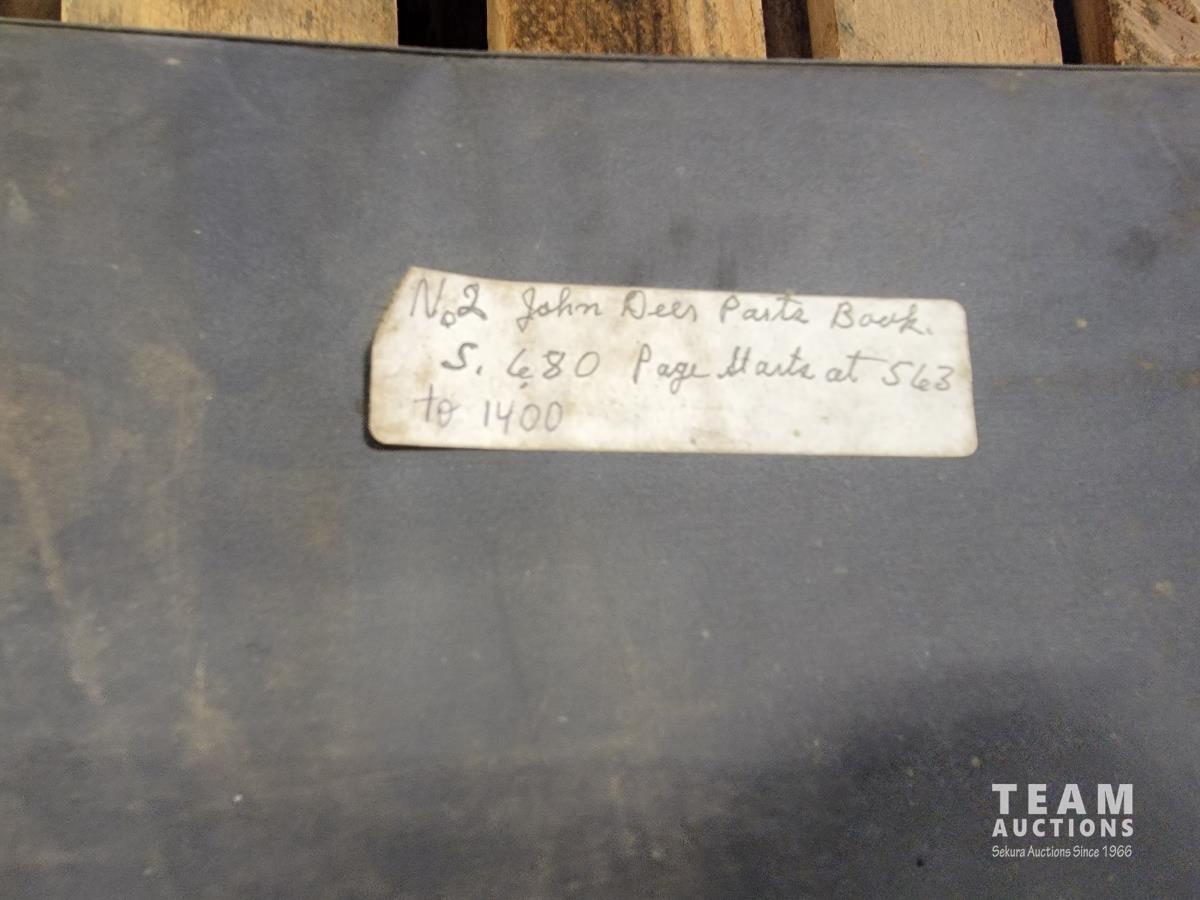 No2 John Deer Parts Book.
S. 680 Page Starts at 563
to 1400
TEAM
AUCTIONS
Sekura Auctions Since 1966